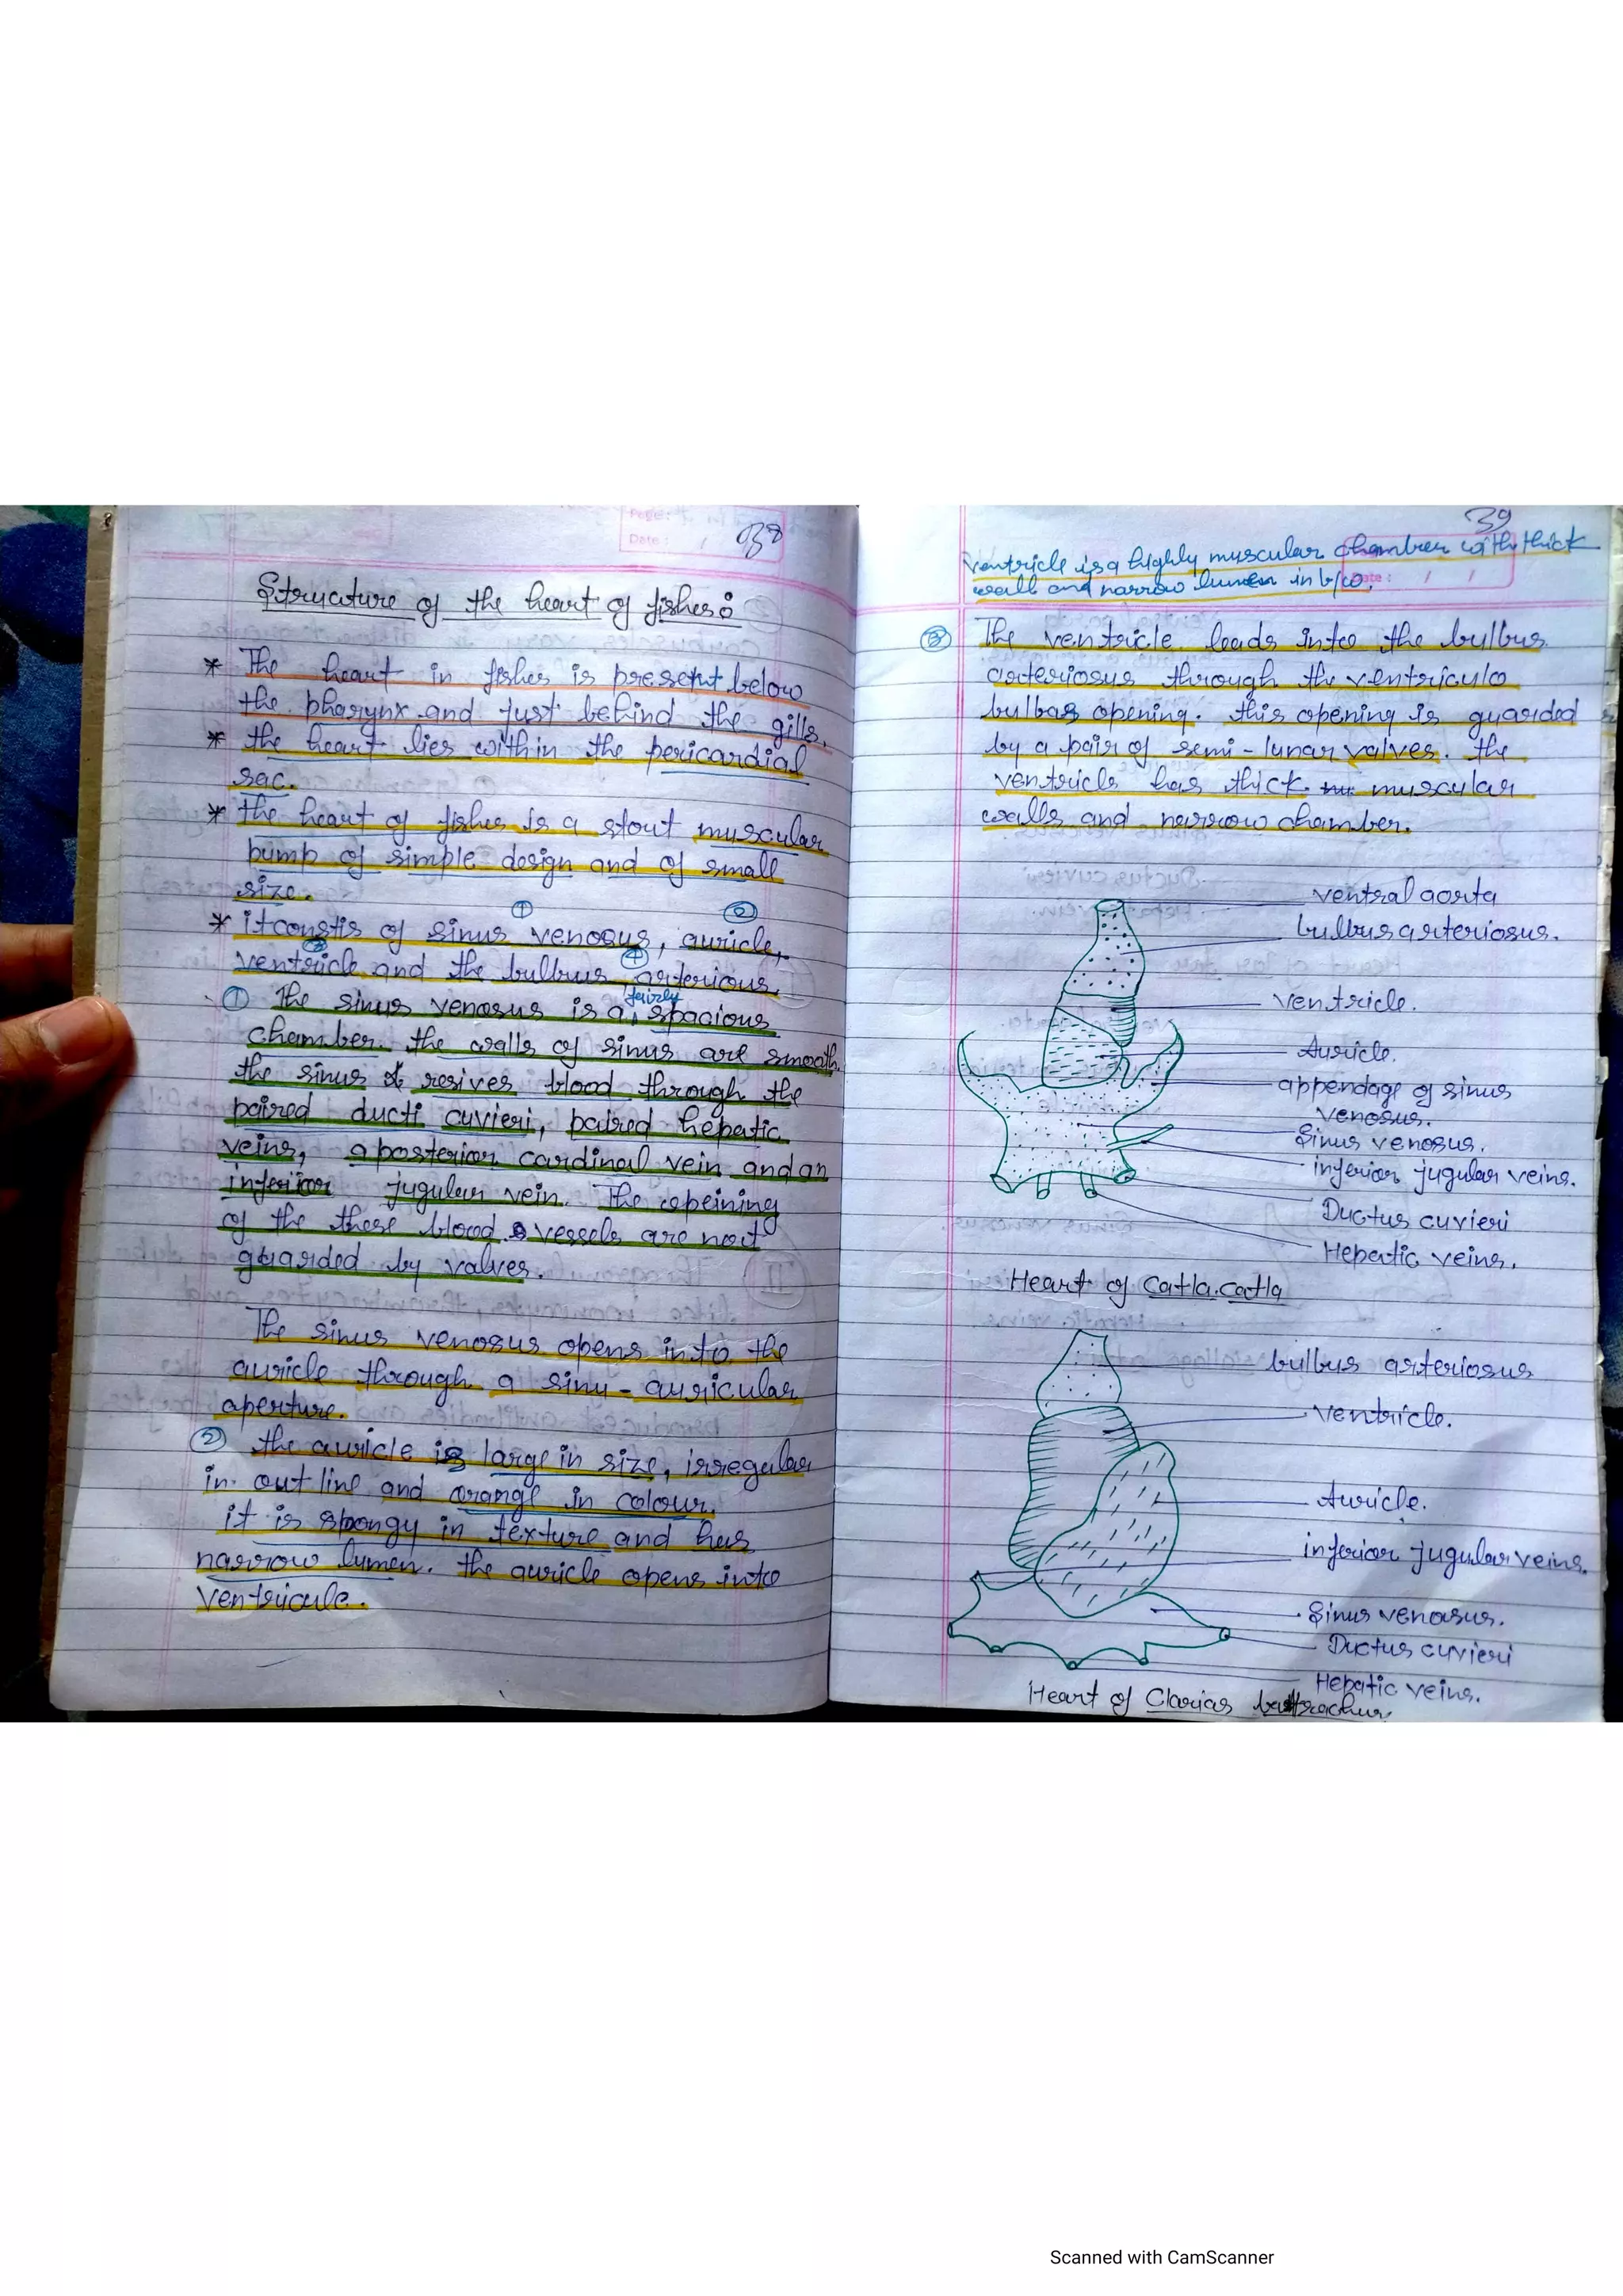 Page:
Date: /
038
Structure of the heart of fishes:
* The heart in fishes is present below
the pharynx and just behind the gills.
* the heart lies within the pericardial
sac.
* the heart of fishes is a stout muscular
pump of simple design and of small
size.
* it constis of sinus venosus, auricle,
ventricle and the bulbus arterious.
① The sinus venosus is a fairly spacious
chamber. the walls of sinus are smooth.
the sinus resives blood through the
paired ducti cuvieri, paired hepatic
veins, a posterior cardinal vein and an
inferior jugular vein. The opeining
of the these blood vessels are not
guarded by valves.
The sinus venosus opens into the
auricle through a sinu-auricular
aperture.
② the auricle is large in size, irregular
in out line and orange in colour.
it is spongy in texture and has
narrow lumen. the auricle opens into
ventricule.
39
Date: / /
Ventricle is a highly muscular chamber with thick
wall and narrow lumen in b/w.
③ The ventricle leads into the bulbus
arteriosus through the ventriculo
bulbas opening. this opening is guarded
by a pair of semi-lunar valves. the
ventricle has thick muscular
walls and narrow chamber.
ventral aorta
bulbus arteriosus.
ventricle.
Auricle.
appendage of sinus
venosus.
Sinus venosus.
inferior jugular veins.
Ductus cuvieri
Hepatic veins.
Heart of Catla.catla
bulbus arteriosus
ventricle.
Auricle.
inferior jugular veins.
Sinus venosus.
Ductus cuvieri
Hepatic veins.
Heart of Clarias battrachus
Scanned with CamScanner